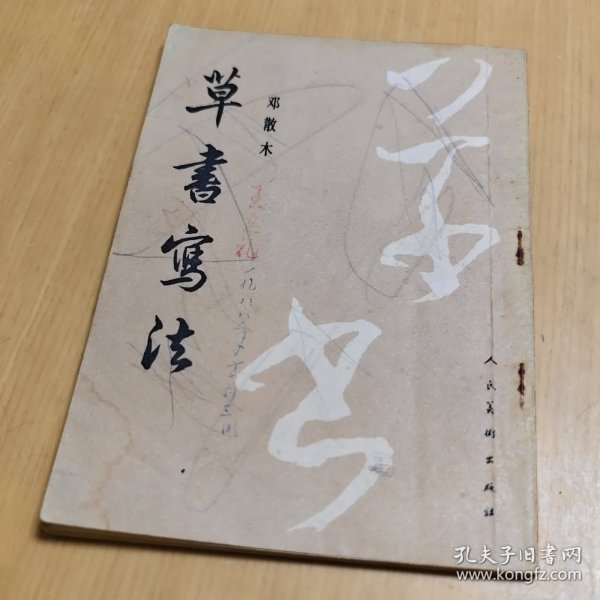 草書寫法
邓散木
草
书
人民美術出版社
孔夫子旧书网
www.kongfz.com